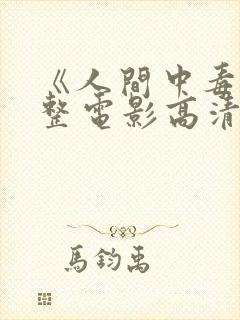 《人間中毒
整電影高清
馬鈞禹